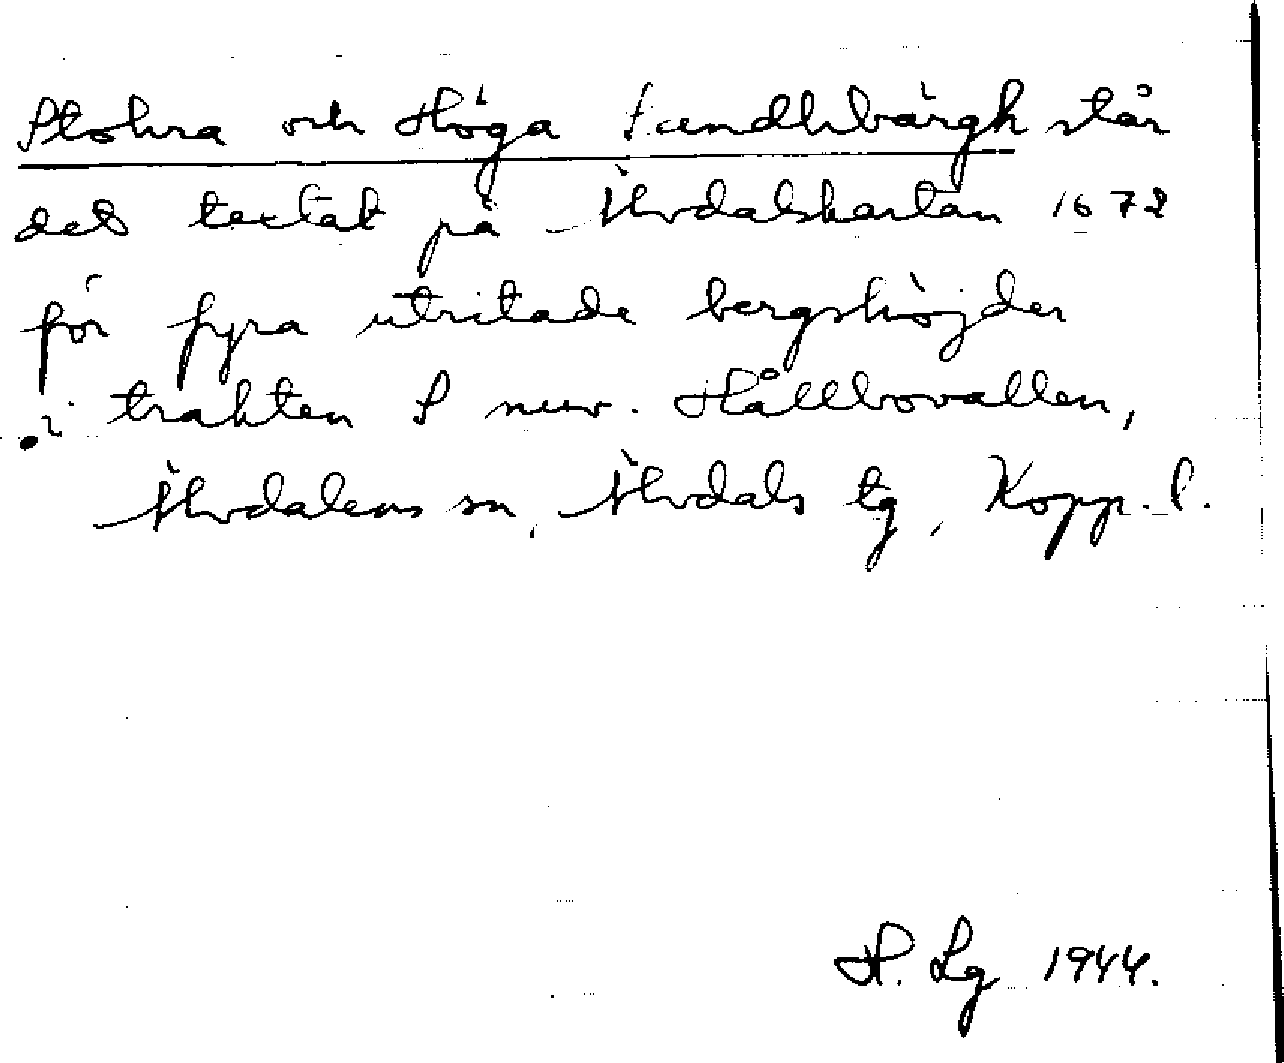 Stohra och Höga Sundhbärgh står
det textat på Älvdalskartan 1672
för fyra utritade bergshöjder
i trakten S nuv. Hållbovallen,
Älvdalens sn, Älvdals tg, Kopp. l.
H. Lg 1944.